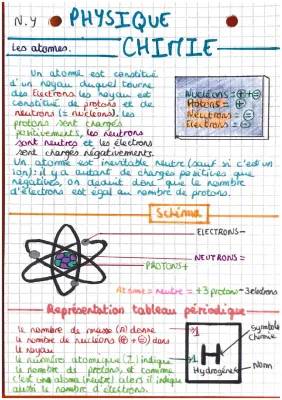 N.Y
PHYSIQUE
CHIMIE
Les atomes.
Un atome est constitué
d'un noyau duquel tourne
des Électrons les noyaux est
constitué de protons et de
neutrons (= nucléons). les
protons sont chargés
positivements, les neutrons
sont neutres et les électrons
sont chargés négativements.
Nucléons = ⊕ ⊖
Protons = ⊕
Neutrons = ⊖
Électrons = ⊖
Un atome est inévitable neutre (sauf si c'est un
ion): il y a autant de charges positives que
négatives, on déduit donc que le nombre
d'électrons est égal au nombre de protons.
Schéma
ELECTRONS-
NEUTRONS =
PROTONS+
Atome = neutre = +3 protons - 3 électrons
Représentation tableau périodique
le nombre de masse (A) donne
le nombre de nucléons (⊕ + ⊖) dans
le noyau
le numéro atomique (Z) indique
le nombre de protons, et comme
c'est un atome (neutre) alors il indique
aussi le nombre d'électrons.
1
1
H
Hydrogène
Symbole
Chimie
Nom